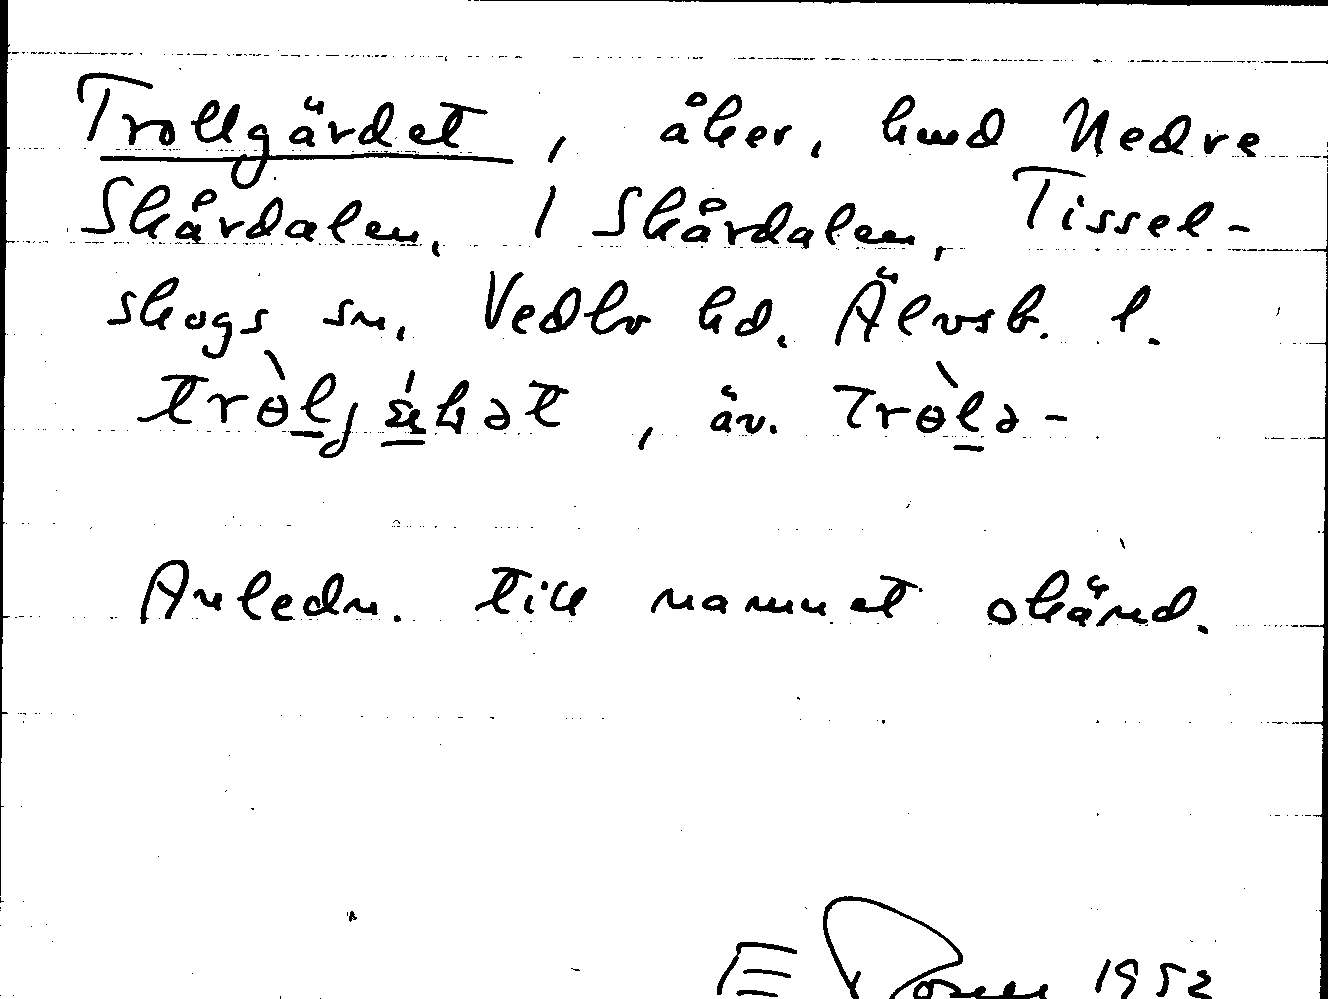 Trollgärdet, åker, hmd Nedre
Skårdalen, 1 Skårdalen, Tissel-
skogs sn, Vedbo hd. Älvsb. l.
äv.
Anledn. till namnet okänd.
E 1952